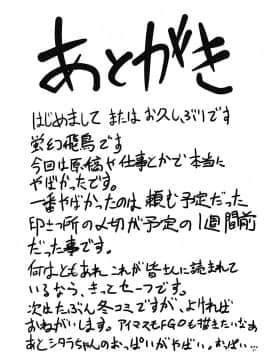 あとがき
はじめまして または お久しぶりです
蛍幻飛鳥です
今回は原稿や仕事とかで本当に
やばかったです。
一番やばかったのは 頼む予定だった
印さつ所の〆切が予定の1週間前
だった事です。
何はともあれ これが皆さんに読まれて
いるなら、きっとセーフです。
次はたぶん冬コミですが、よければ
おねがいします。アイマスもFGOも描きたいなぁ
あとシタラちゃんのおっぱいがやばい。やばい…